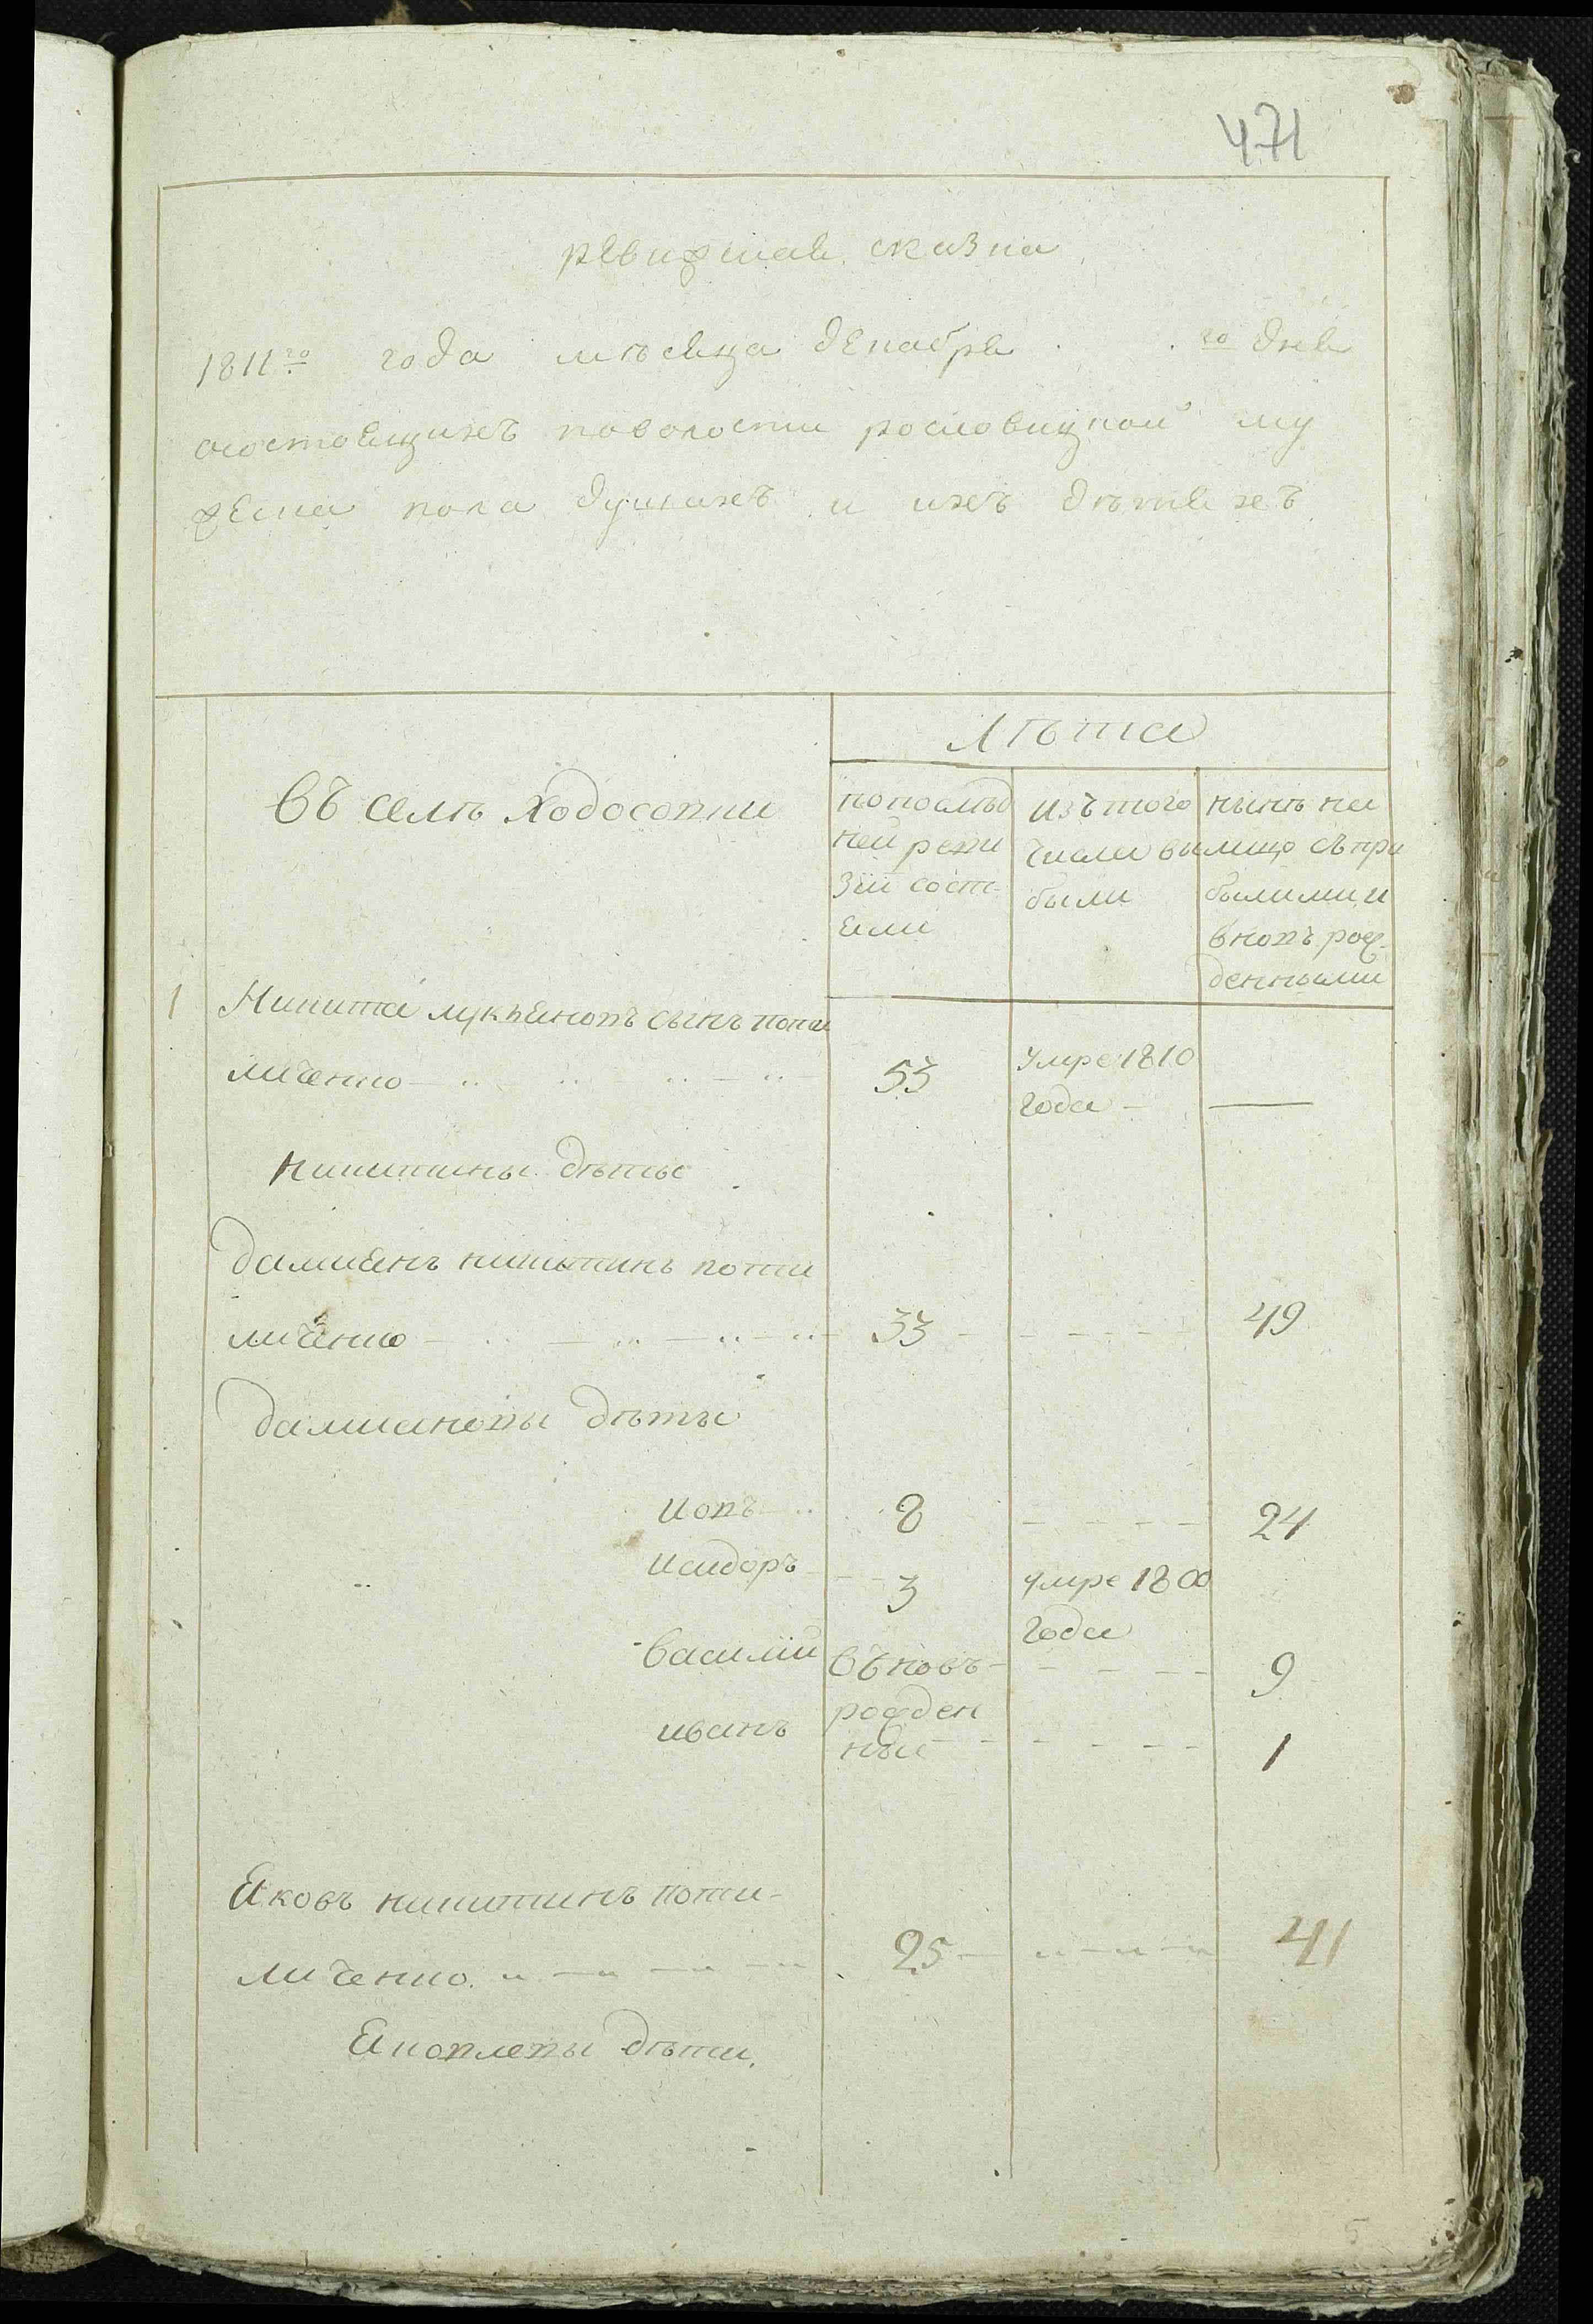 471
ревижская сказка
1811го года мѣсяца декабря го дня
осостоящихъ поволости рословицкой му
жеска пола душахъ и ихъ дѣтяхъ
Лѣта
въ селѣ Ходосовки
попослѣд
ней реви
зіи сост-
яли
изъ того
числа вы
были
нынѣ на
лицо съпри
былыми и
вновъ рож-
денными
1 Никита лукьяновъ сынъ поти
личенко 53 умре 1810
года
Никитины дѣты
Дамиянъ никитинъ поти
личенко 33 49
Дамиановы дѣты
иовъ 8 24
исидоръ 3 умре 1800
года
василій въновъ 9
рожден
иванъ ные 1
Яковъ никитинъ поти-
личенко 25 41
Яковлевы дѣти.